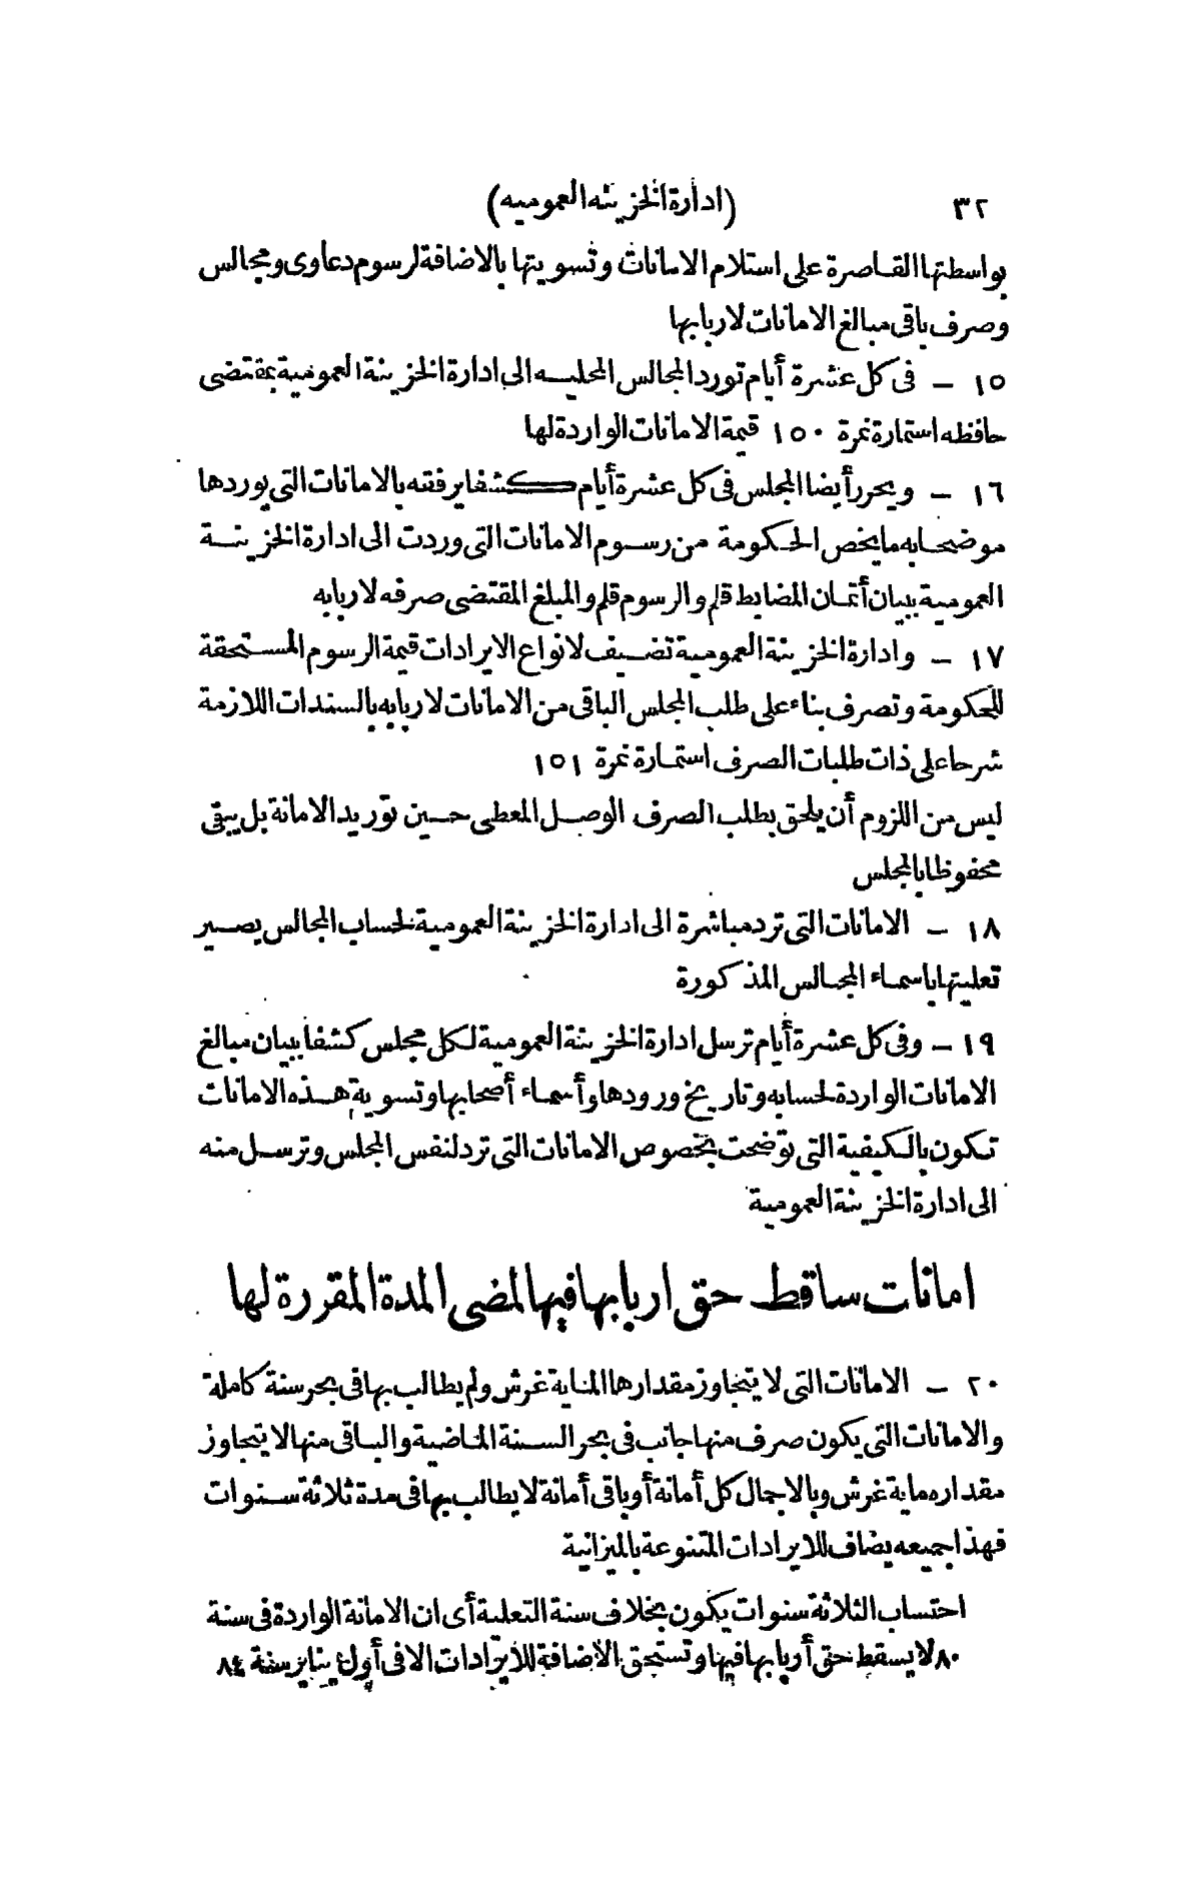 ٣٢ (ادارة الخزينه العموميه)
بواسطتها القاصرة على استلام الامانات وتسويتها بالاضافة لرسوم دعاوى ومجالس
وصرف باقى مبالغ الامانات لاربابها
١٥ ـ فى كل عشرة أيام تورد المجالس المحليه الى ادارة الخزينة العمومية بمقتضى
حافظه استمارة نمرة ١٥٠ قيمة الامانات الواردة لها
١٦ ـ ويحرر أيضا المجلس فى كل عشرة أيام كشفا يرفقه بالامانات التى يوردها
موضحا به ما يخص الحكومة من رسوم الامانات التى وردت الى ادارة الخزينة
العمومية ببيان أثمان المضابط قلم والرسوم قلم والمبلغ المقتضى صرفه لاربابه
١٧ ـ وادارة الخزينة العمومية تضيف لانواع الايرادات قيمة الرسوم المستحقة
للحكومة وتصرف بناء على طلب المجلس الباقى من الامانات لاربابه بالسندات اللازمة
شرحا على ذات طلبات الصرف استمارة نمرة ١٥١
ليس من اللزوم أن يلحق بطلب الصرف الوصل المعطى حين توريد الامانة بل يبقى
محفوظا بالمجلس
١٨ ـ الامانات التى ترد مباشرة الى ادارة الخزينة العمومية لحساب المجالس يصير
تعليتها باسماء المجالس المذكورة
١٩ ـ وفى كل عشرة أيام ترسل ادارة الخزينة العمومية لكل مجلس كشفا ببيان مبالغ
الامانات الواردة لحسابه وتاريخ ورودها وأسماء أصحابها وتسوية هذه الامانات
تكون بالكيفية التى توضحت بخصوص الامانات التى ترد لنفس المجلس وترسل منه
الى ادارة الخزينة العمومية
امانات ساقط حق اربابها فيها لمضى المدة المقررة لها
٢٠ ـ الامانات التى لا يتجاوز مقدارها الماية غرش ولم يطالب بها فى بحر سنة كاملة
والامانات التى يكون صرف منها جانب فى بحر السنة الماضية والباقى منها لا يتجاوز
مقداره ماية غرش وبالاجمال كل أمانة أو باقى أمانة لا يطالب بها فى مدة ثلاثة سنوات
فهذا جميعه يضاف للايرادات المتنوعة بالميزانية
احتساب الثلاثة سنوات يكون بخلاف سنة التعلية أى ان الامانة الواردة فى سنة
٨٠ لا يسقط حق أربابها فيها وتستحق الاضافة للايرادات الا فى أول يناير سنة ٨٤